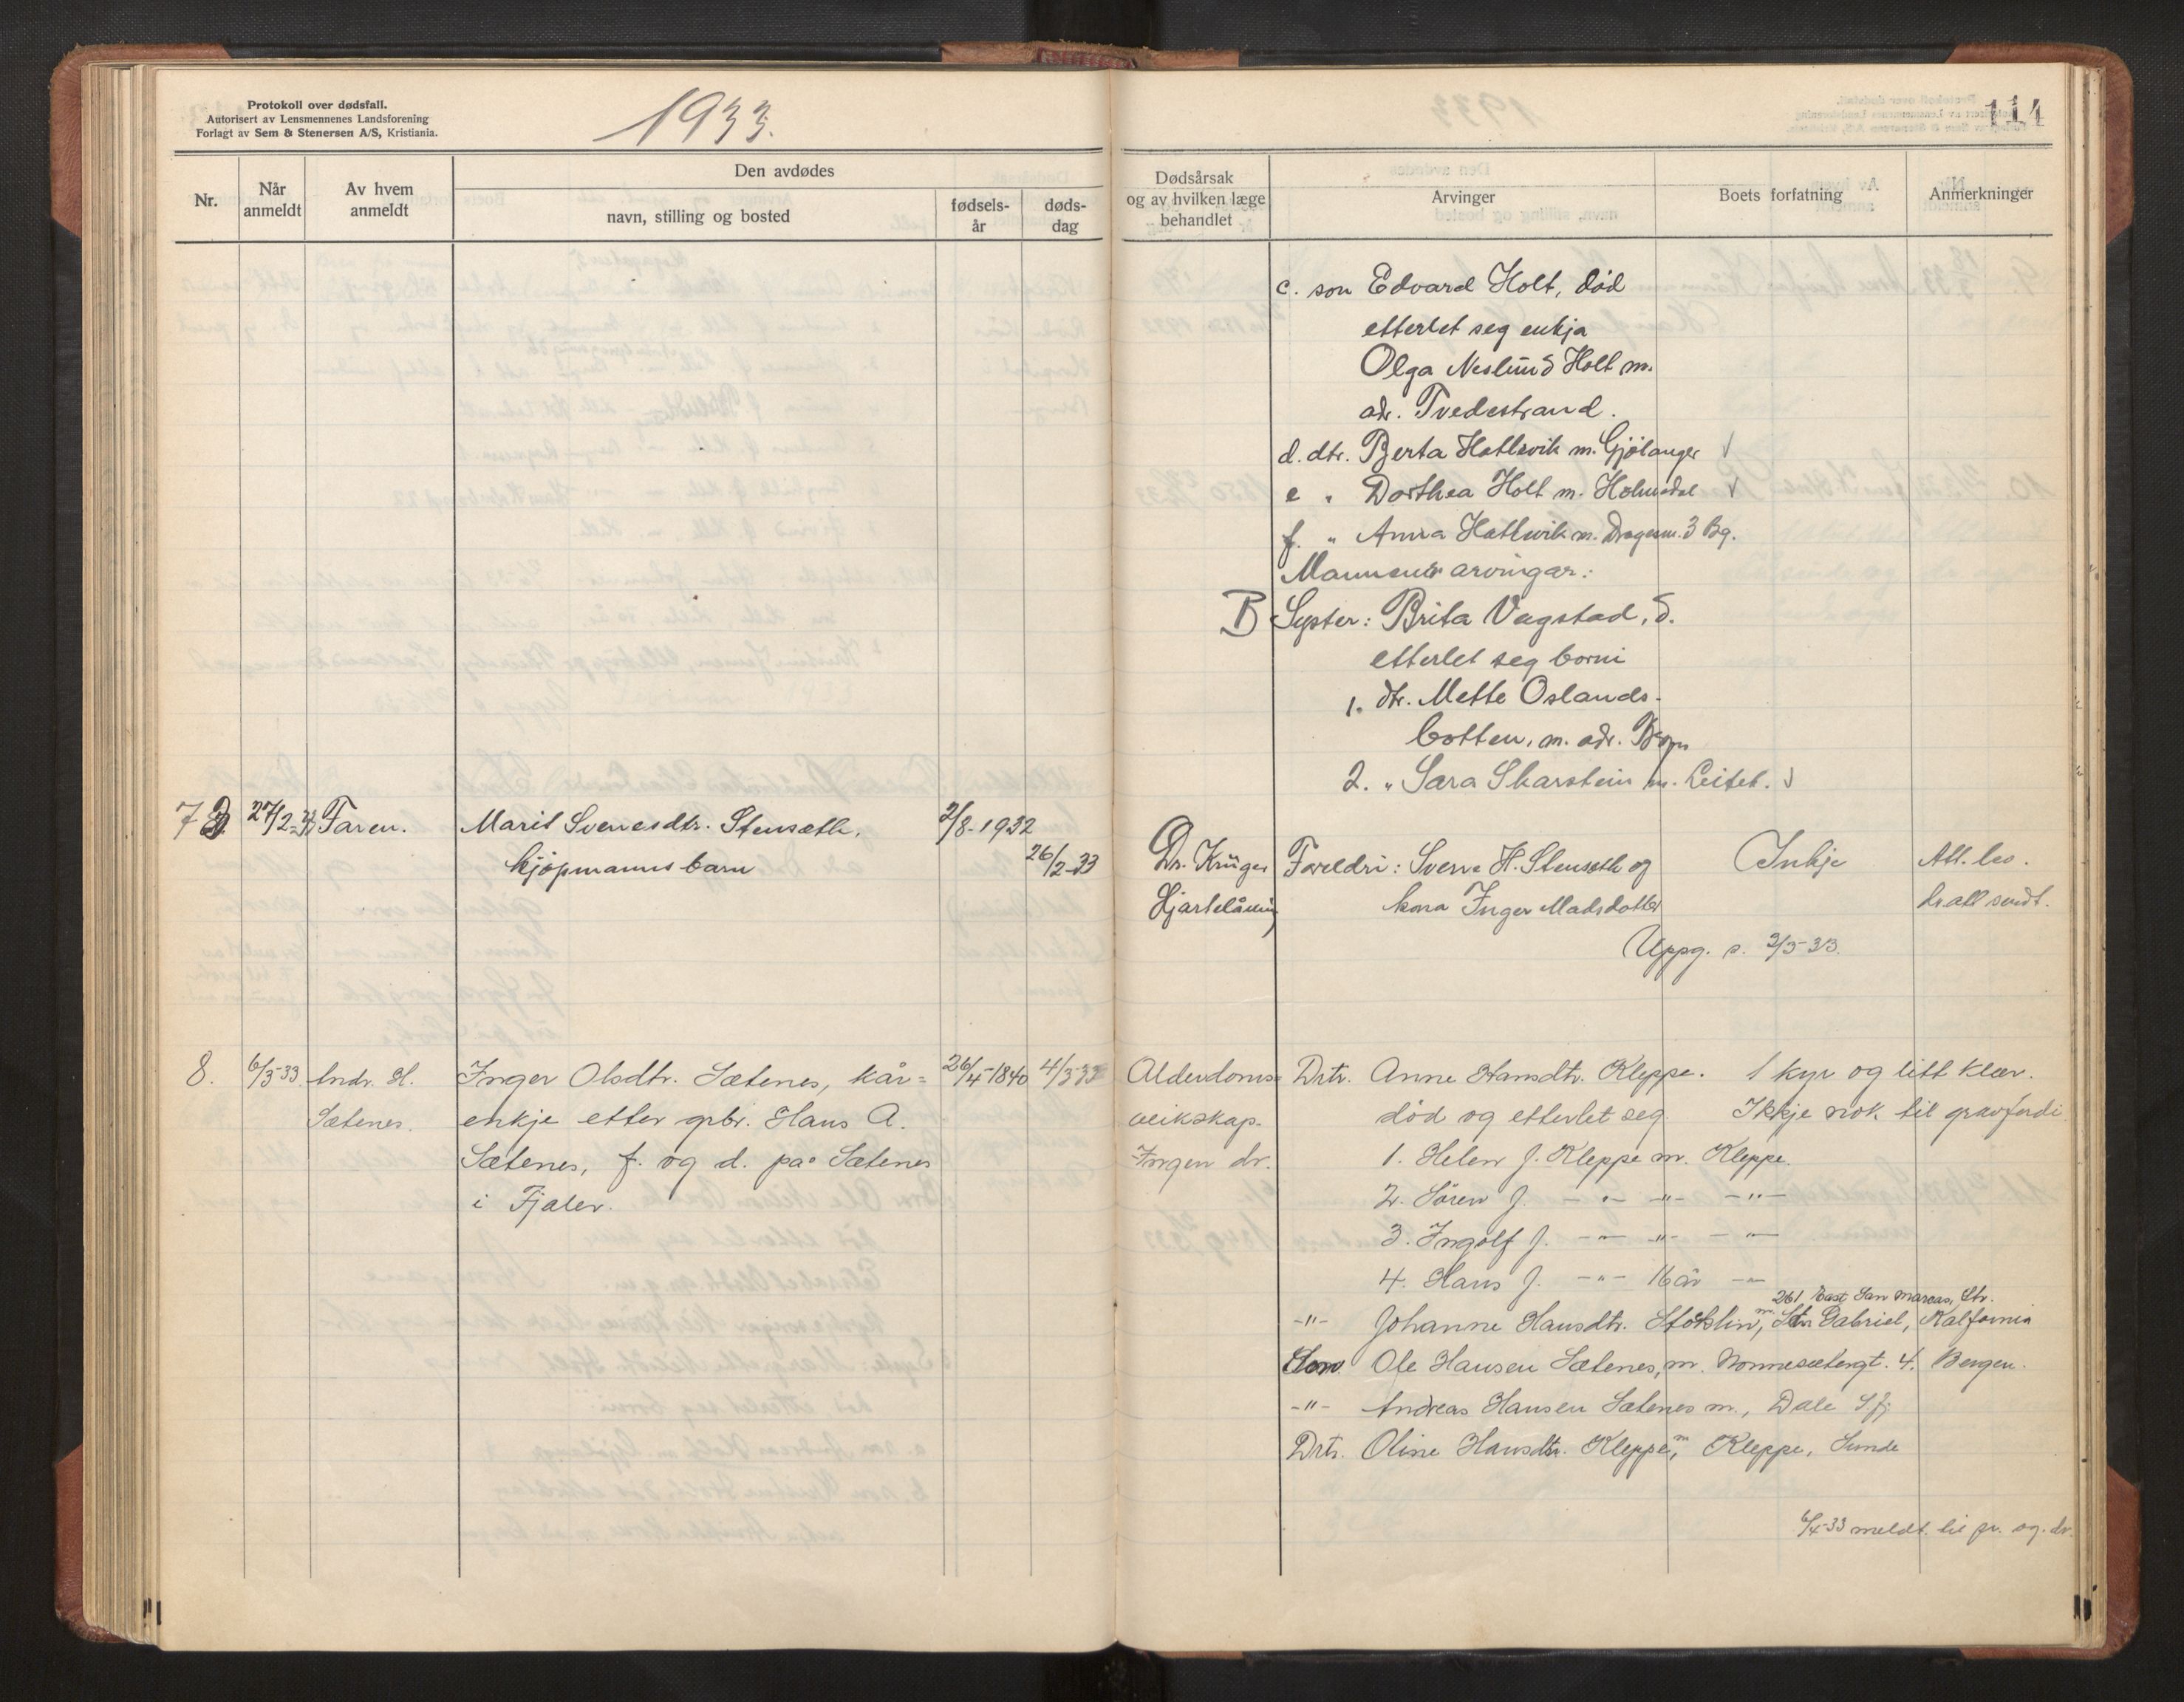 Protokoll over dødsfall.
Autorisert av Lensmennenes Landsforening
Forlagt av Sem & Stenersen A/S, Kristiania.
1933.
114
Nr.
Når anmeldt
Av hvem anmeldt
Den avdødes
navn, stilling og bosted
fødsels-år
døds-dag
Dødsårsak og av hvilken læge behandlet
Arvinger
Boets forfatning
Anmerkninger
c. son Edvard Holt, død
etterlet seg enkja
Olga Neslund Holt m.
adr. Tvedestrand.
d. dtr. Berta Hatlevik m. Gjølanger
e " Dorthea Holt m. Holmedal
f. " Anna Hatlevik m. Dragesm. 3 Bg.
Mannens arvingar:
B Syster: Brita Vagstad, d.
etterlet seg borni
1. dtr. Mette Oslands-
botten, m. adr.
2. " Sara Skarstein m. Leitet.
7 27/2-33 Faren. Marit Sverresdtr. Stenseth, 2/8-1932
kjøpmannsbarn 26/2-33
Dr. Krüger Foreldri: Sverre H. Stenseth og Inkje Att. leo.
Hjartelåming kona Inger Madsdotter dr.att sendt.
Uppg. s. 2/3-33.
8. 6/3-33 Andr. H. Inger Olsdtr. Sætenes, kår= 26/4-1840 4/3-33 Alderdoms= Drtr. Anne Hansdtr. Kleppe. 1 kyr og litt klær.
Sætenes. enkje etter grbr. Hans A. veikskap. død og etterlet seg. Ikkje nok til gravferdi
Sætenes, f. og d. på Sætenes Ingen dr. 1. Helen J. Kleppe m. Kleppe.
i Fjaler. 2. Søren J. - " - - " - - " -
3. Ingolf J. - " - - " - - " -
4. Hans J. - " - 16 år - " -
261 East San Marcas, Str.
-"- Johanne Hansdtr. Støkslin, m. San Gabriel, Kalfornia
Son Ole Hansen Sætenes, m. Nonnesætergt. 4. Bergen.
-"- Andreas Hansen Sætenes m., Dale S.fj.
Drtr. Oline Hansdtr. Kleppe, m Kleppe, Sunde
6/4-33 meldt. til pr. og. dr.